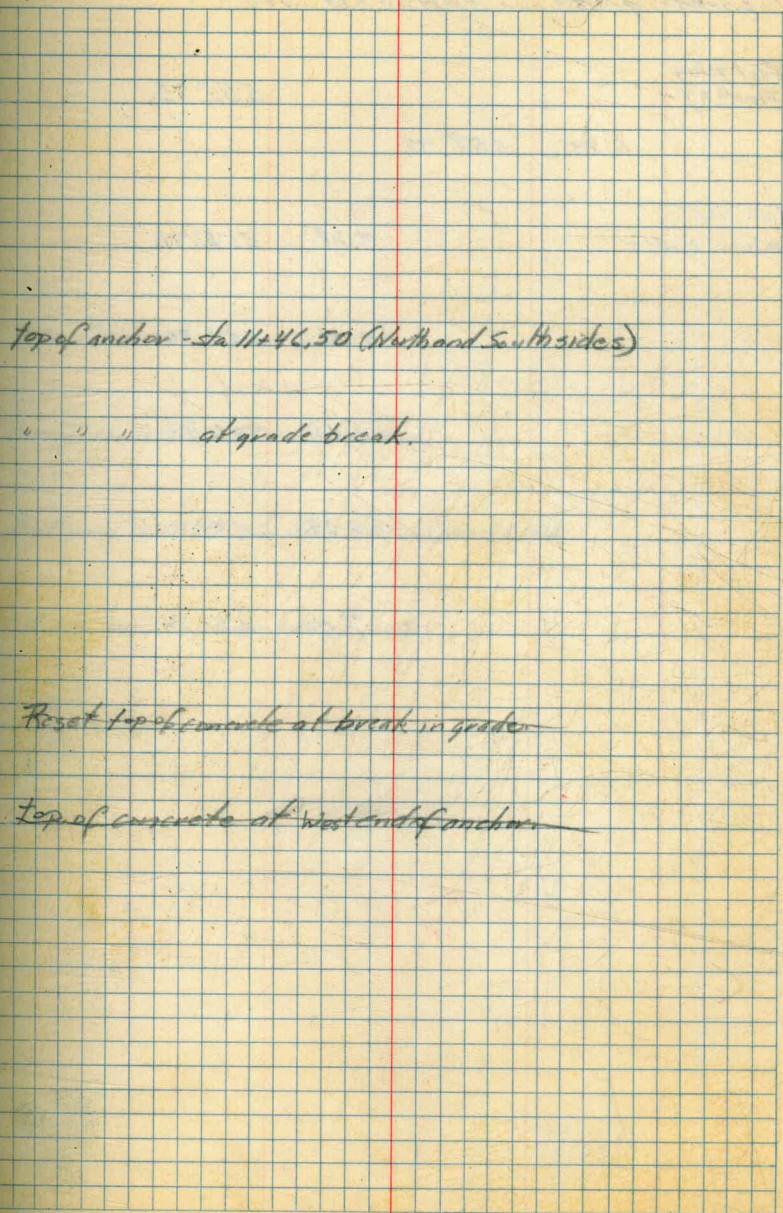 top of anchor - sta 11+46.50 (North and South sides)
" " " at grade break.
Reset top of concrete at break in grade
top of concrete at West end of anchor